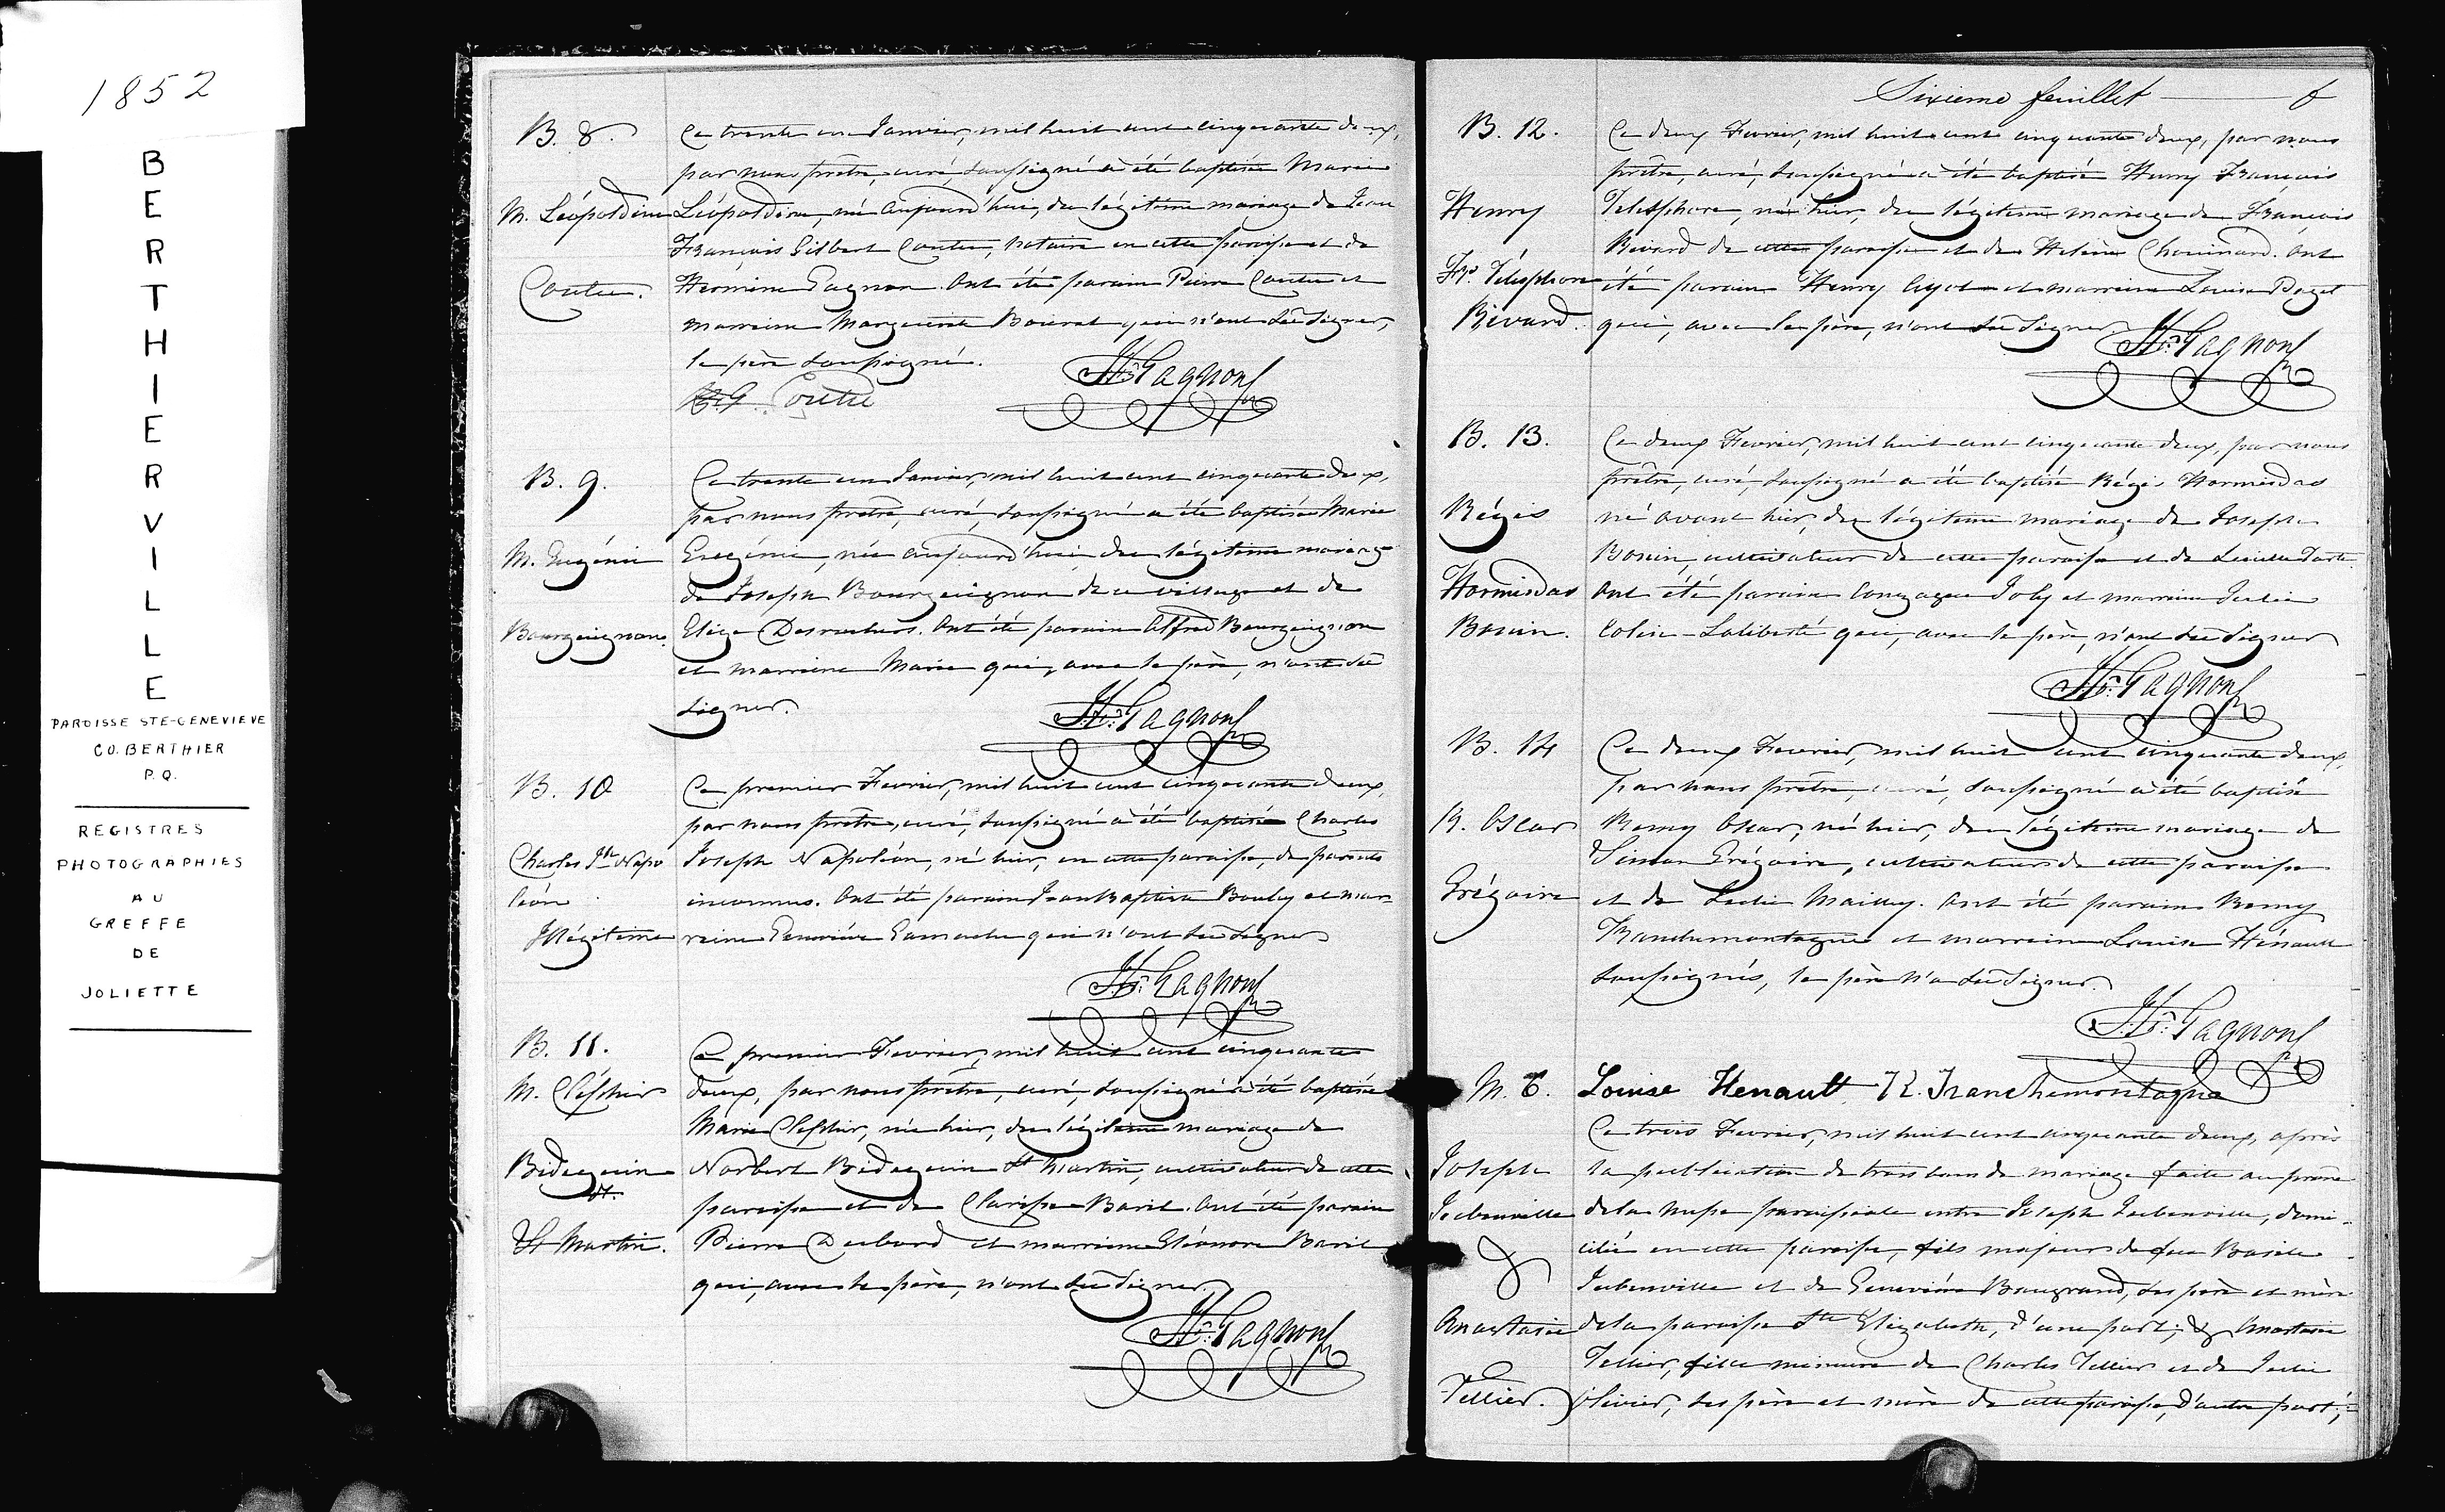 1852
BERTHIERVILLE
PAROISSE STE-GENEVIEVE
CO. BERTHIER
P.Q.
REGISTRES
PHOTOGRAPHIES
AU
GREFFE
DE
JOLIETTE
B. 8.
M. Léopoldine
Coutu.
Ce trente un Janvier, mil huit cent cinquante deux,
par nous prêtre, curé, soussigné a été baptisée Marie
Léopoldine, née aujourd'hui, du légitime mariage de Jean
François Gilbert Coutu, notaire en cette paroisse et de
Hermine Gagnon. Ont été parain Pierre Coutu et
marraine Marguerite qui n'ont su signer,
le père soussigné.
Coutu
Gagnon
B. 9.
M. Eugénie
Bourguignon.
Ce trente un Janvier, mil huit cent cinquante deux,
par nous prêtre, curé, soussigné a été baptisée Marie
Eugénie, née aujourd'hui du légitime mariage
de Joseph Bourguignon de ce village et de
Elize Desrochers. Ont été parain Alfred Bourguignon
et marraine Marie qui, avec le père, n'ont su
signer.
Gagnon
B. 10
Charles Jph Napo
léon
Illégitime
Ce premier Fevrier, mil huit cent cinquante deux,
par nous prêtre, curé, soussigné a été baptisé Charles
Joseph Napoléon, né hier, en cette paroisse, de parents
inconnus. Ont été parain Jean Baptiste et mar=
raine Geneviève qui n'ont su signer
Gagnon
B. 11.
M.
Bidegouin
dt.
St Martin.
Ce premier Fevrier, mil huit cent cinquante
deux, par nous prêtre, curé, soussigné a été baptisée
Marie née hier, du légitime mariage de
Norbert St Martin, cultivateur de cette
paroisse et de Clarisse Baril. Ont été parain
Pierre et marraine Eléonore Baril
qui, avec le père, n'ont su signer
Gagnon
Sixieme feuillet 6
B. 12.
Henry
Frs. Télesphore
Rivard.
Ce deux Fevrier, mil huit cent cinquante deux, par nous
prêtre, curé, soussigné a été baptisé Henry François
Telesphore, né hier, du légitime mariage de François
Rivard de cette paroisse et de Helène Chouinard. Ont
été parain Henry et marraine Louise
qui, avec le père, n'ont su signer
Gagnon
B. 13.
Régis
Hormisdas
Bonin.
Ce deux Fevrier, mil huit cent cinquante deux, par nous
prêtre, curé, soussigné a été baptisé Régis Hormisdas
né avant hier, du légitime mariage de Joseph
Bonin, cultivateur de cette paroisse et de
Ont été parain Gonzague Joly et marraine Julie
Colin-Laliberté qui, avec le père, n'ont su signer
Gagnon
B. 14
R. Oscar
Grégoire
Ce deux Fevrier, mil huit cent cinquante deux,
par nous prêtre, curé, soussigné a été baptisé
Remy Oscar, né hier, du légitime mariage de
Simon Grégoire, cultivateur de cette paroisse
et de Mailly. Ont été parain Remy
Franchemontagne et marraine Louise Hénault
soussignés, le père n'a su signer.
Gagnon
Louise Henault R. Franchemontagne
M. 6.
Joseph
Jubenville
&
Anastasie
Tellier.
Ce trois Fevrier, mil huit cent cinquante deux, après
la publication de trois bans de mariage faite au prône
de la messe paroissiale entre Joseph Jubenville, domi-
cilié en cette paroisse, fils majeur de feu Basile
Jubenville et de Geneviève Baugrand, ses père et mère
de la paroisse Ste Elizabeth, d'une part; & Anastasie
Tellier, fille mineure de Charles Tellier et de Julie
Olivier, ses père et mère de cette paroisse, d'autre part;